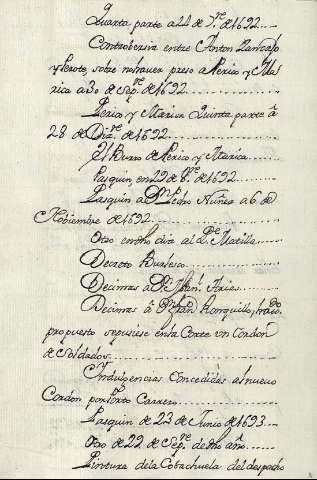 9
Quarta parte a 24 de 7.re de 1692....
Controbersia entre Anton Zancajo
y Perote, sobre no hauer preso a Perico y Ma
rica a 30 de sep.re de 1692......
Perico y Marica Quinta parte â
28 de Diz.re de 1692.......
El Burro de Perico y Marica.....
Pasquin, en 29 de 8.re de 1692.....
Pasquin a D.n Pedro Nuñez a 6 de
Nobiembre de 1692......
Otro en dho dia al P.e Matilla.....
Decreto Burlesco.......
Decimas a D.n Arias....
Decimas â D.n Ronquillo,
propuesto se pusiese en la Corte vn Cordon
de Soldados..........
Yndulgencias Concedidas al nueuo
Cordon por Porto Carrero........
Pasquin de 23 de Junio de 1693....
Otro de 22 de Sep.re de dho año....
Pintura de la Cobachuela del despacho